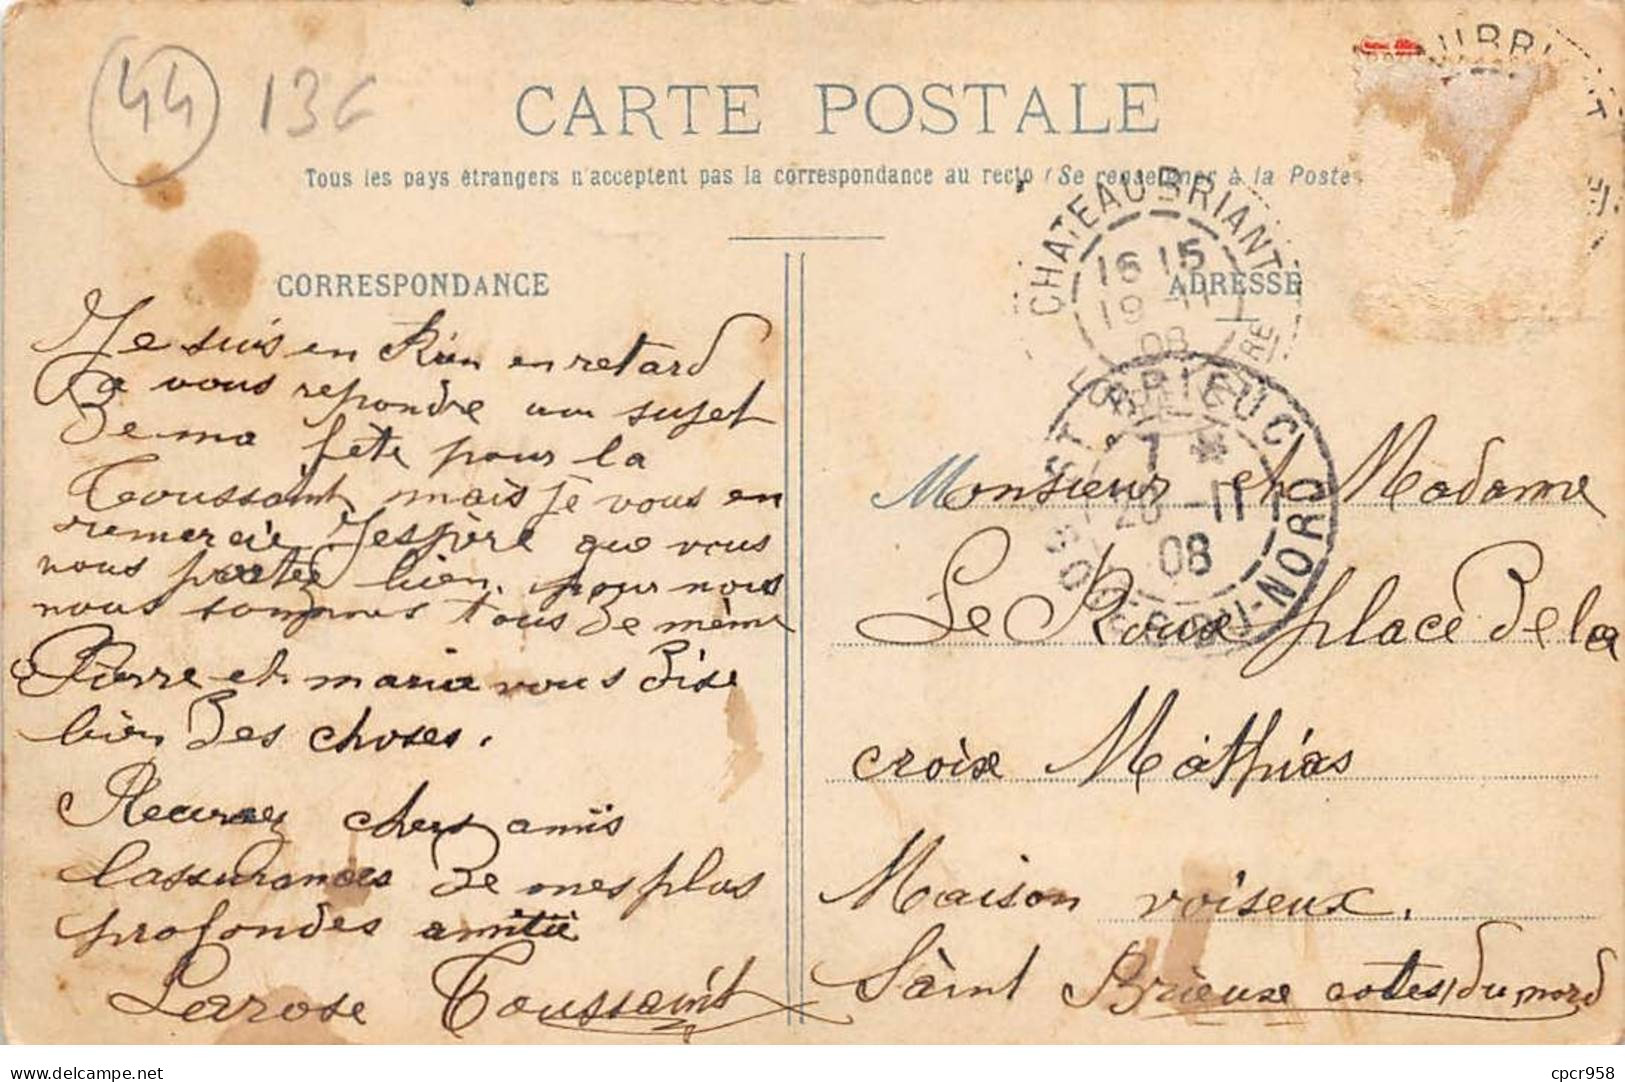 44 136
CARTE POSTALE
Tous les pays étrangers n'acceptent pas la correspondance au recto (Se renseigner à la Poste
CORRESPONDANCE
Je suis en Rien en retard
a vous repondre au sujet
De ma fête pour la
Toussaint mais je vous en
remercie J'espère que vous
vous portez bien. pour nous
nous sommes tous De même
Pierre et maria vous Dise
bien Des choses.
chers amis
l'assurances De mes plus
profondes amitié
Larose Toussaint
CHATEAUBRIANT
16 15
19 -11
08
ADRESSE
ST BRIEUC
7 *
20 -11
08
COTES-DU-NORD
Monsieur et Madame
Le Roux place De la
croix Mathias
Maison voiseux.
Saint Brieux cotes du nord
delcampe.net
cpcr958